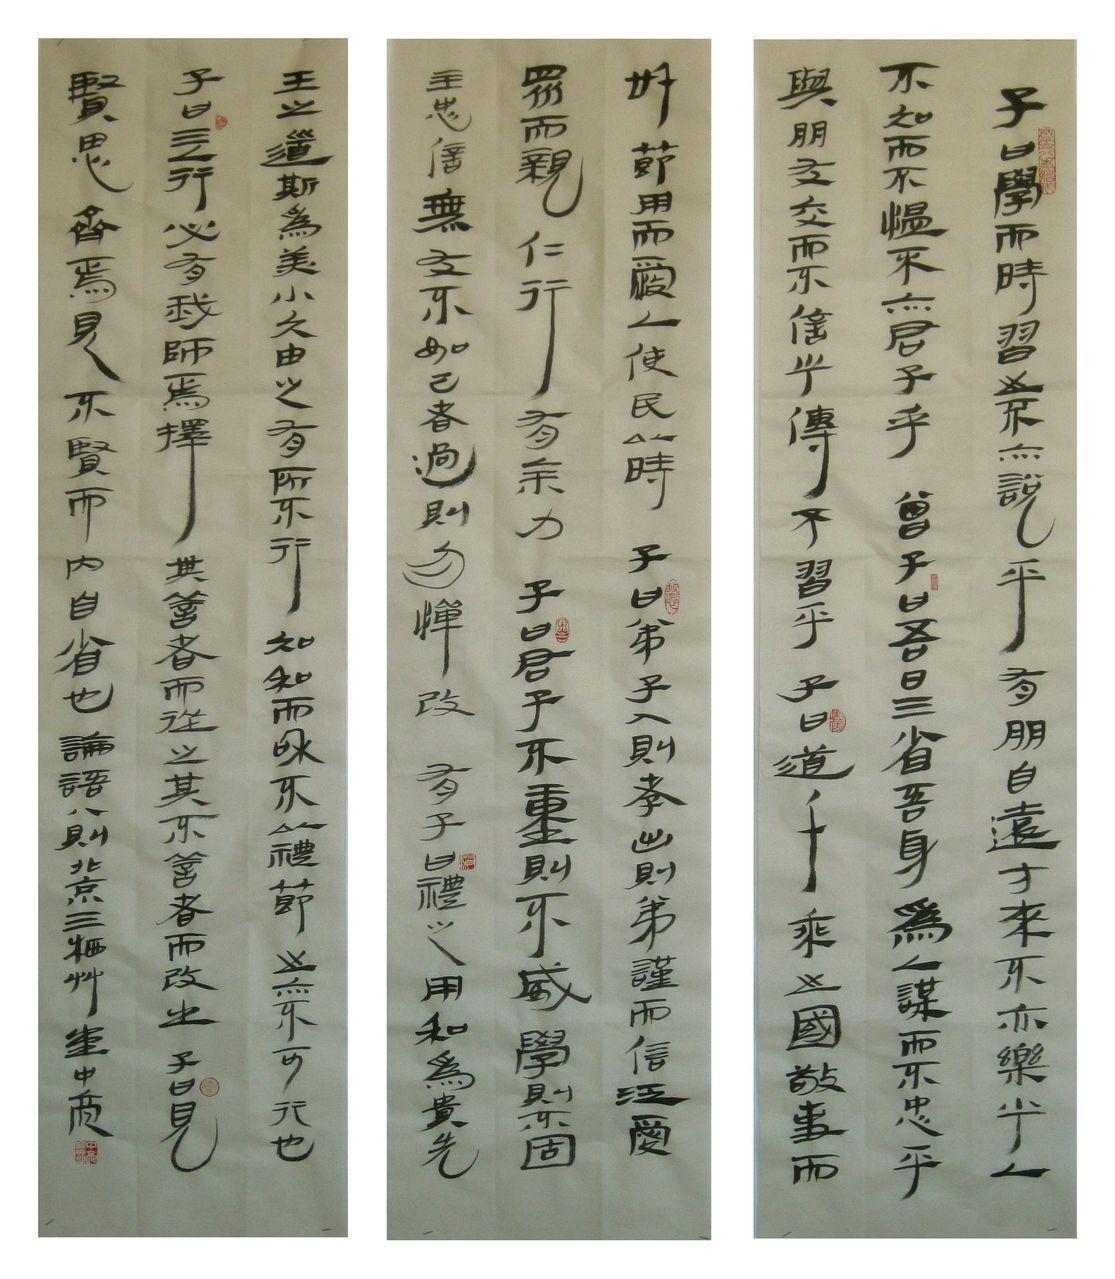 子曰學而時習之不亦說乎有朋自遠方來不亦樂乎人
不知而不慍不亦君子乎 曾子曰吾日三省吾身爲人謀而不忠乎
與朋友交而不信乎傳不習乎 子曰道千乘之國敬事而
信節用而愛人使民以時 子曰弟子入則孝出則弟謹而信汎愛
眾而親仁行有余力 子曰君子不重則不威學則不固
主忠信無友不如己者過則勿憚改 有子曰禮之用和爲貴先
王之道斯爲美小大由之有所不行知和而和不以禮節之亦不可行也
子曰三人行必有我師焉擇其善者而從之其不善者而改之 子曰見
賢思齊焉見不賢而內自省也 論語八則北京三栖艸堂中